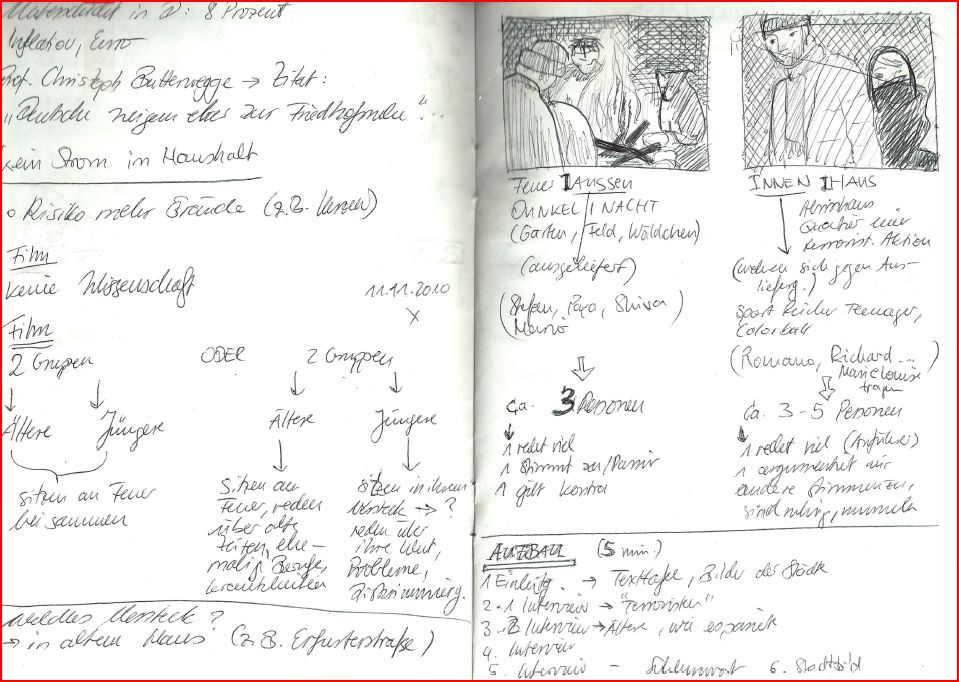 in D: 8 Prozent
Inflation, Euro
Prof. Christoph Butterwegge → Zitat:
„Deutsche neigen eher zur Friedhofsruhe"...
kein Strom im Haushalt
o Risiko mehr Brände (z.B. Kerzen)
Film
keine Wissenschaft
11.11.2010
X
Film
2 Gruppen ODER 2 Gruppen
Ältere Jüngere Ältere Jüngere
sitzen an Feuer
beisammen
sitzen am
Feuer, reden
über alte
Zeiten, ehe-
malige Berufe,
Krankheiten
sitzen in ihrem
Versteck → ?
reden über
ihre Wut,
Probleme,
Diskriminierung.
welches Versteck?
→ in altem Haus (z.B. Erfurterstraße)
Feuer AUSSEN
DUNKEL / NACHT
(Garten, Feld, Wäldchen)
(ausgeliefert)
(Stefan, Papa,
Mario)
Ca. 3 Personen
1 redet viel
1 stimmt zu/
1 gibt kontra
INNEN HAUS
Abrisshaus
Quartier einer
Terrorist. Aktion
(wehren sich gegen Aus-
lieferg.)
Teenager,
(Romano, Richard ...
Marie Louise
tragen)
Ca. 3-5 Personen
1 redet viel (Anführer)
1 argumentiert mit
andere stimmen zu,
sind ruhig, murmeln
AUFBAU (5 min.)
1 Einleitg. → Texttafel, Bilder der Städte
2. 1 Interview → "Terroristen"
3. 2 Interview → Ältere, wie es passierte
4. Interview
5. Interview - Schlusswort 6. Stadtbild